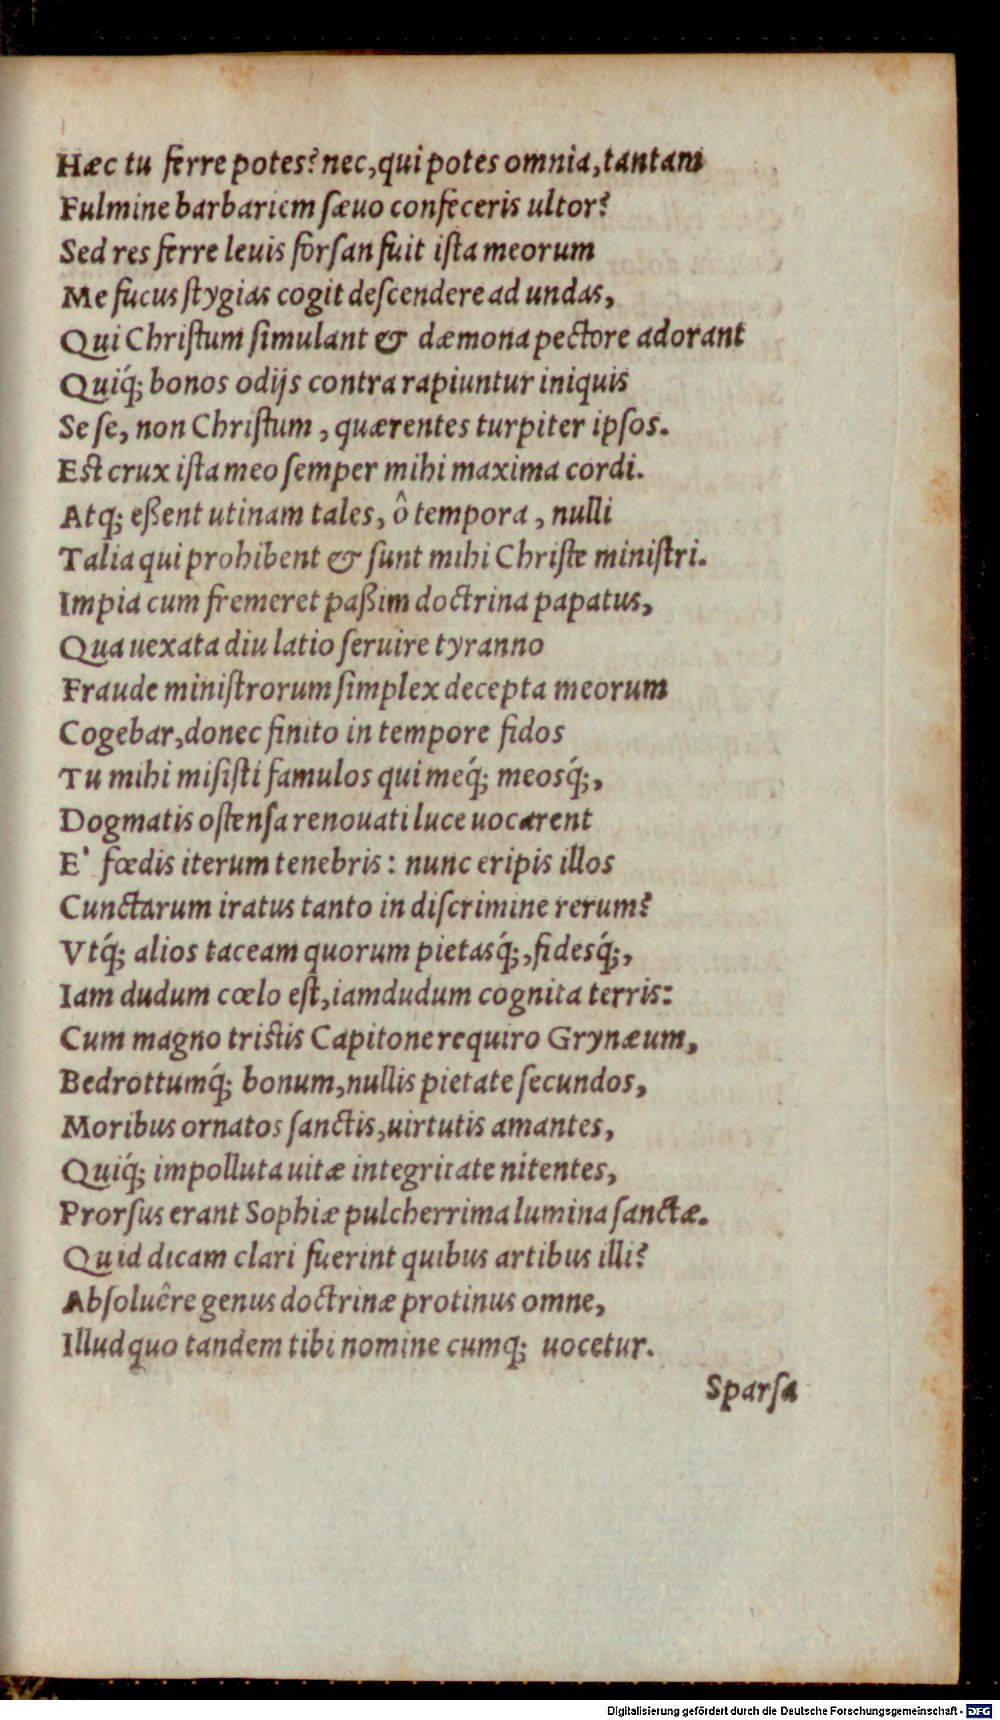 Hæc tu ferre potes? nec, qui potes omnia, tantam
Fulmine barbariem ſæuo confeceris ultor?
Sed res ferre leuis forſan fuit iſta meorum
Me fucus ſtygias cogit deſcendere ad undas,
Qui Chriſtum ſimulant & dæmona pectore adorant
Quiq́; bonos odijs contra rapiuntur iniquis
Se ſe, non Chriſtum, quærentes turpiter ipſos.
Eſt crux iſta meo ſemper mihi maxima cordi.
Atq; eßent utinam tales, ô tempora, nulli
Talia qui prohibent & ſunt mihi Chriſte miniſtri.
Impia cum fremeret paßim doctrina papatus,
Qua uexata diu latio ſeruire tyranno
Fraude miniſtrorum ſimplex decepta meorum
Cogebar, donec finito in tempore fidos
Tu mihi miſiſti famulos qui meq́; meosq́;,
Dogmatis oſtenſa renouati luce uocarent
E' fœdis iterum tenebris: nunc eripis illos
Cunctarum iratus tanto in diſcrimine rerum?
Vtq́; alios taceam quorum pietasq́;, fidesq́;,
Iam dudum cœlo eſt, iamdudum cognita terris:
Cum magno triſtis Capitone requiro Grynæum,
Bedrottumq́; bonum, nullis pietate ſecundos,
Moribus ornatos ſanctis, uirtutis amantes,
Quiq́; impolluta uitæ integritate nitentes,
Prorſus erant Sophiæ pulcherrima lumina ſanctæ.
Quid dicam clari fuerint quibus artibus illi?
Abſoluêre genus doctrinæ protinus omne,
Illud quo tandem tibi nomine cumq; uocetur.
Sparſa
Digitalisierung gefördert durch die Deutsche Forschungsgemeinschaft - DFG